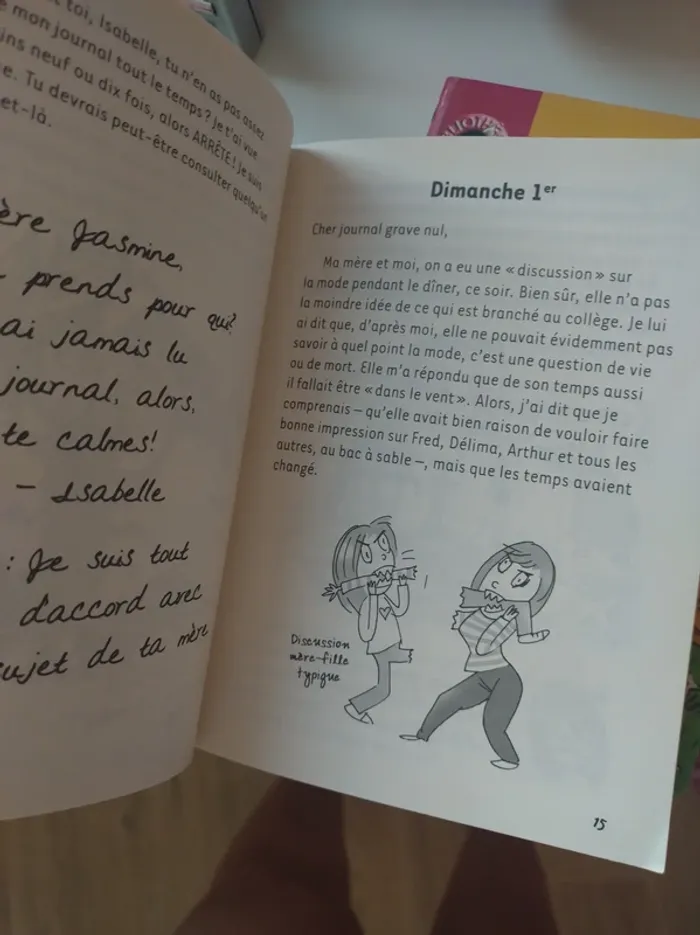 toi, Isabelle, tu n'en as pas assez
mon journal tout le temps? Je t'ai vue
neuf ou dix fois, alors ARRÊTE! Je suis
Tu devrais peut-être consulter quelqu'un
et-là.
Jasmine,
prends pour qui?
ai jamais lu
journal, alors,
te calmes!
– Isabelle
: Je suis tout
d'accord avec
sujet de ta mère
Dimanche 1er
Cher journal grave nul,
Ma mère et moi, on a eu une « discussion » sur
la mode pendant le dîner, ce soir. Bien sûr, elle n'a pas
la moindre idée de ce qui est branché au collège. Je lui
ai dit que, d'après moi, elle ne pouvait évidemment pas
savoir à quel point la mode, c'est une question de vie
ou de mort. Elle m'a répondu que de son temps aussi
il fallait être « dans le vent ». Alors, j'ai dit que je
comprenais – qu'elle avait bien raison de vouloir faire
bonne impression sur Fred, Délima, Arthur et tous les
autres, au bac à sable –, mais que les temps avaient
changé.
Discussion
mère-fille
typique
15